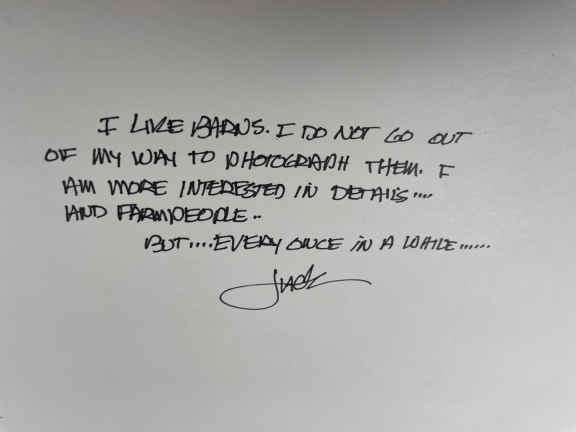 I LIKE BARNS. I DO NOT GO OUT
OF MY WAY TO PHOTOGRAPH THEM. I
AM MORE INTERESTED IN DETAILS....
AND FARMPEOPLE..
BUT....EVERY ONCE IN A WHILE......
Jack